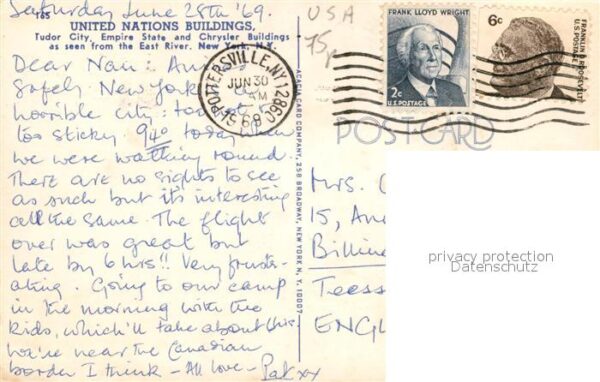 Saturday June 28th '69.
165
UNITED NATIONS BUILDINGS,
Tudor City, Empire State and Chrysler Buildings
as seen from the East River. New York, N.Y.
Dear Nan: Arr
Safely New York
horrible city: too hot
too sticky 94° today when
we were walking round.
There are no sights to see
as such but it's interesting
all the same. The flight
over was great but
late by 6 hrs!! Very frustr-
ating. Going to our camp
in the morning with the
kids, which'll take about this
We're near the Canadian
border I think - All love - Pat xx
POTTERSVILLE, N.Y. 12860
JUN 30
AM
ACACIA CARD COMPANY, 258 BROADWAY, NEW YORK N. Y. 10007
USA
FRANK LLOYD WRIGHT
2c
U.S. POSTAGE
6c
FRANKLIN D. ROOSEVELT
U.S. POSTAGE
POST CARD
Mrs.
15,
Billin
Teess
ENGL
privacy protection
Datenschutz